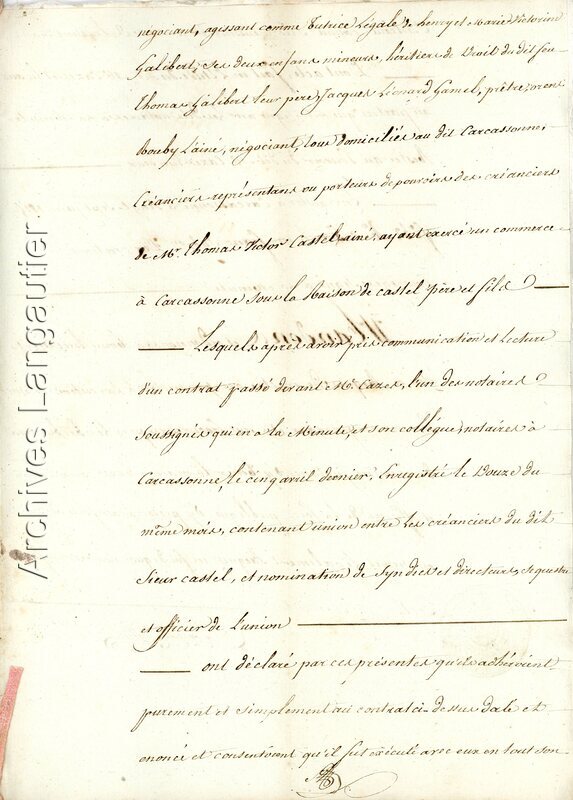 négociant, agissant comme tutrice Légale de henry et Marie Victorine
Galibert, ses deux enfans mineurs, héritiers de Droit du dit feu
Thomas Galibert leur père, Jacques Léonard Gamel, prêtre,
Rouby L'ainé, négociant, tous domiciliés au dit Carcassonne,
Créanciers représentans ou porteurs de pouvoirs des créanciers
de Mr. Thomas Victor Castel, ainé, ayant exercé un commerce
à Carcassonne sous la Raison de castel père et fils
Lesquels après avoir pris communication et Lecture
d'un contrat passé devant Me. Cazes, l'un des notaires
Soussignés qui en a la Minute, et son collégue, notaires à
Carcassonne, le cinq avril dernier, Enregistré le Douze du
même mois, contenant union entre les créanciers du dit
Sieur castel, et nomination de Syndics et directeurs, sequestre
et officier de L'union
ont déclaré par ces présentes qu'ils adhéroient
purement et simplement au contrat ci-dessus daté et
énoncé et consentoient qu'il fut exécuté avec eux en tout son
Archives Langautier